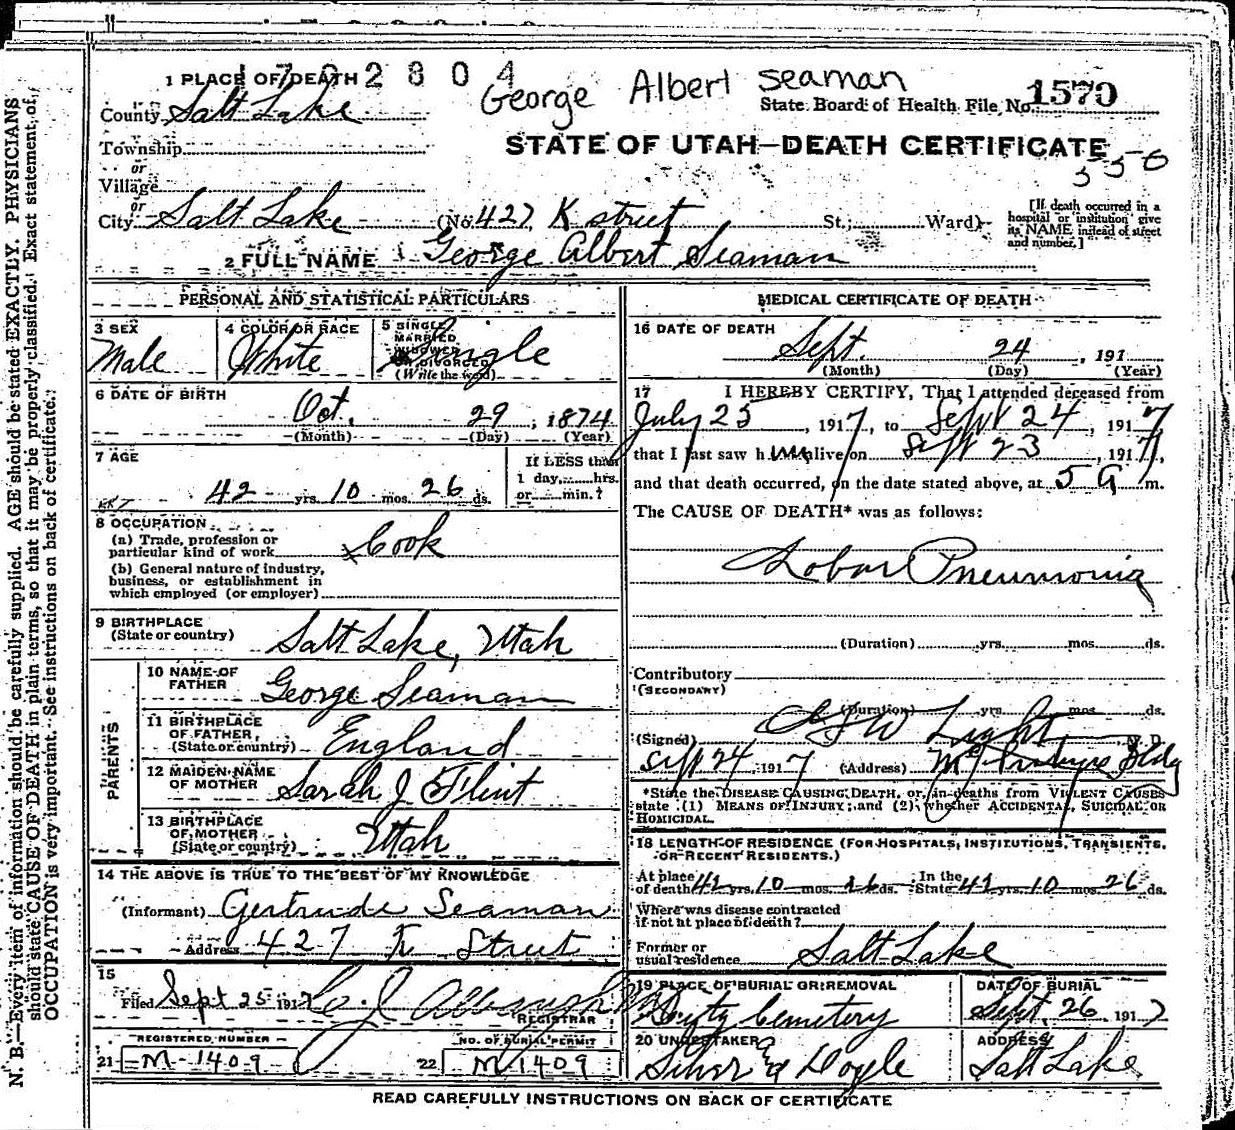 1702804
George Albert Seaman
1 PLACE OF DEATH
County Salt Lake
State Board of Health File No. 1570
Township
STATE OF UTAH—DEATH CERTIFICATE
or
Village
or
City Salt Lake (No. 427, K street St.; Ward)
[If death occurred in a hospital or institution give its NAME instead of street and number.]
2 FULL NAME George Albert Seaman
PERSONAL AND STATISTICAL PARTICULARS
3 SEX
Male
4 COLOR OR RACE
White
5 SINGLE
MARRIED
WIDOWED
OR DIVORCED
(Write the word)
Single
6 DATE OF BIRTH
Oct. 29, 1874
(Month) (Day) (Year)
7 AGE
42 yrs. 10 mos. 26 ds.
If LESS than
1 day,......hrs.
or......min.?
8 OCCUPATION
(a) Trade, profession or
particular kind of work Cook
(b) General nature of industry,
business, or establishment in
which employed (or employer)
9 BIRTHPLACE
(State or country) Salt Lake, Utah
PARENTS
10 NAME OF
FATHER George Seaman
11 BIRTHPLACE
OF FATHER,
(State or country) England
12 MAIDEN NAME
OF MOTHER Sarah J Flint
13 BIRTHPLACE
OF MOTHER
(State or country) Utah
14 THE ABOVE IS TRUE TO THE BEST OF MY KNOWLEDGE
(Informant) Gertrude Seaman
Address 427 K Street
15
Filed Sept 25 1917
REGISTRAR
REGISTERED NUMBER
21 M-1409
NO. OF BURIAL PERMIT
22 M1409
MEDICAL CERTIFICATE OF DEATH
16 DATE OF DEATH
Sept. 24, 191
(Month) (Day) (Year)
17 I HEREBY CERTIFY, That I attended deceased from
July 25, 1917, to Sept 24 1917
that I last saw him alive on Sept 23, 1917,
and that death occurred, on the date stated above, at 5 A m.
The CAUSE OF DEATH* was as follows:
Lobar Pneumonia
(Duration) yrs. mos. ds.
Contributory
(SECONDARY)
(Duration) yrs. mos. ds.
(Signed) Light M. D.
Sept 24 1917 (Address) Bldg
*State the DISEASE CAUSING DEATH, or, in deaths from VIOLENT CAUSES
state (1) MEANS OF INJURY; and (2) whether ACCIDENTAL, SUICIDAL OR
HOMICIDAL.
18 LENGTH OF RESIDENCE (FOR HOSPITALS, INSTITUTIONS, TRANSIENTS,
OR RECENT RESIDENTS.)
At place
of death 42 yrs. 10 mos. 26 ds. In the State 42 yrs. 10 mos. 26 ds.
Where was disease contracted
if not at place of death?
Former or
usual residence Salt Lake
19 PLACE OF BURIAL OR REMOVAL
City Cemetery
DATE OF BURIAL
Sept. 26 1917
20 UNDERTAKER
ADDRESS
Salt Lake
READ CAREFULLY INSTRUCTIONS ON BACK OF CERTIFICATE
N. B.—Every item of information should be carefully supplied. AGE should be stated EXACTLY. PHYSICIANS
should state CAUSE OF DEATH in plain terms, so that it may be properly classified. Exact statement of
OCCUPATION is very important. See instructions on back of certificate.